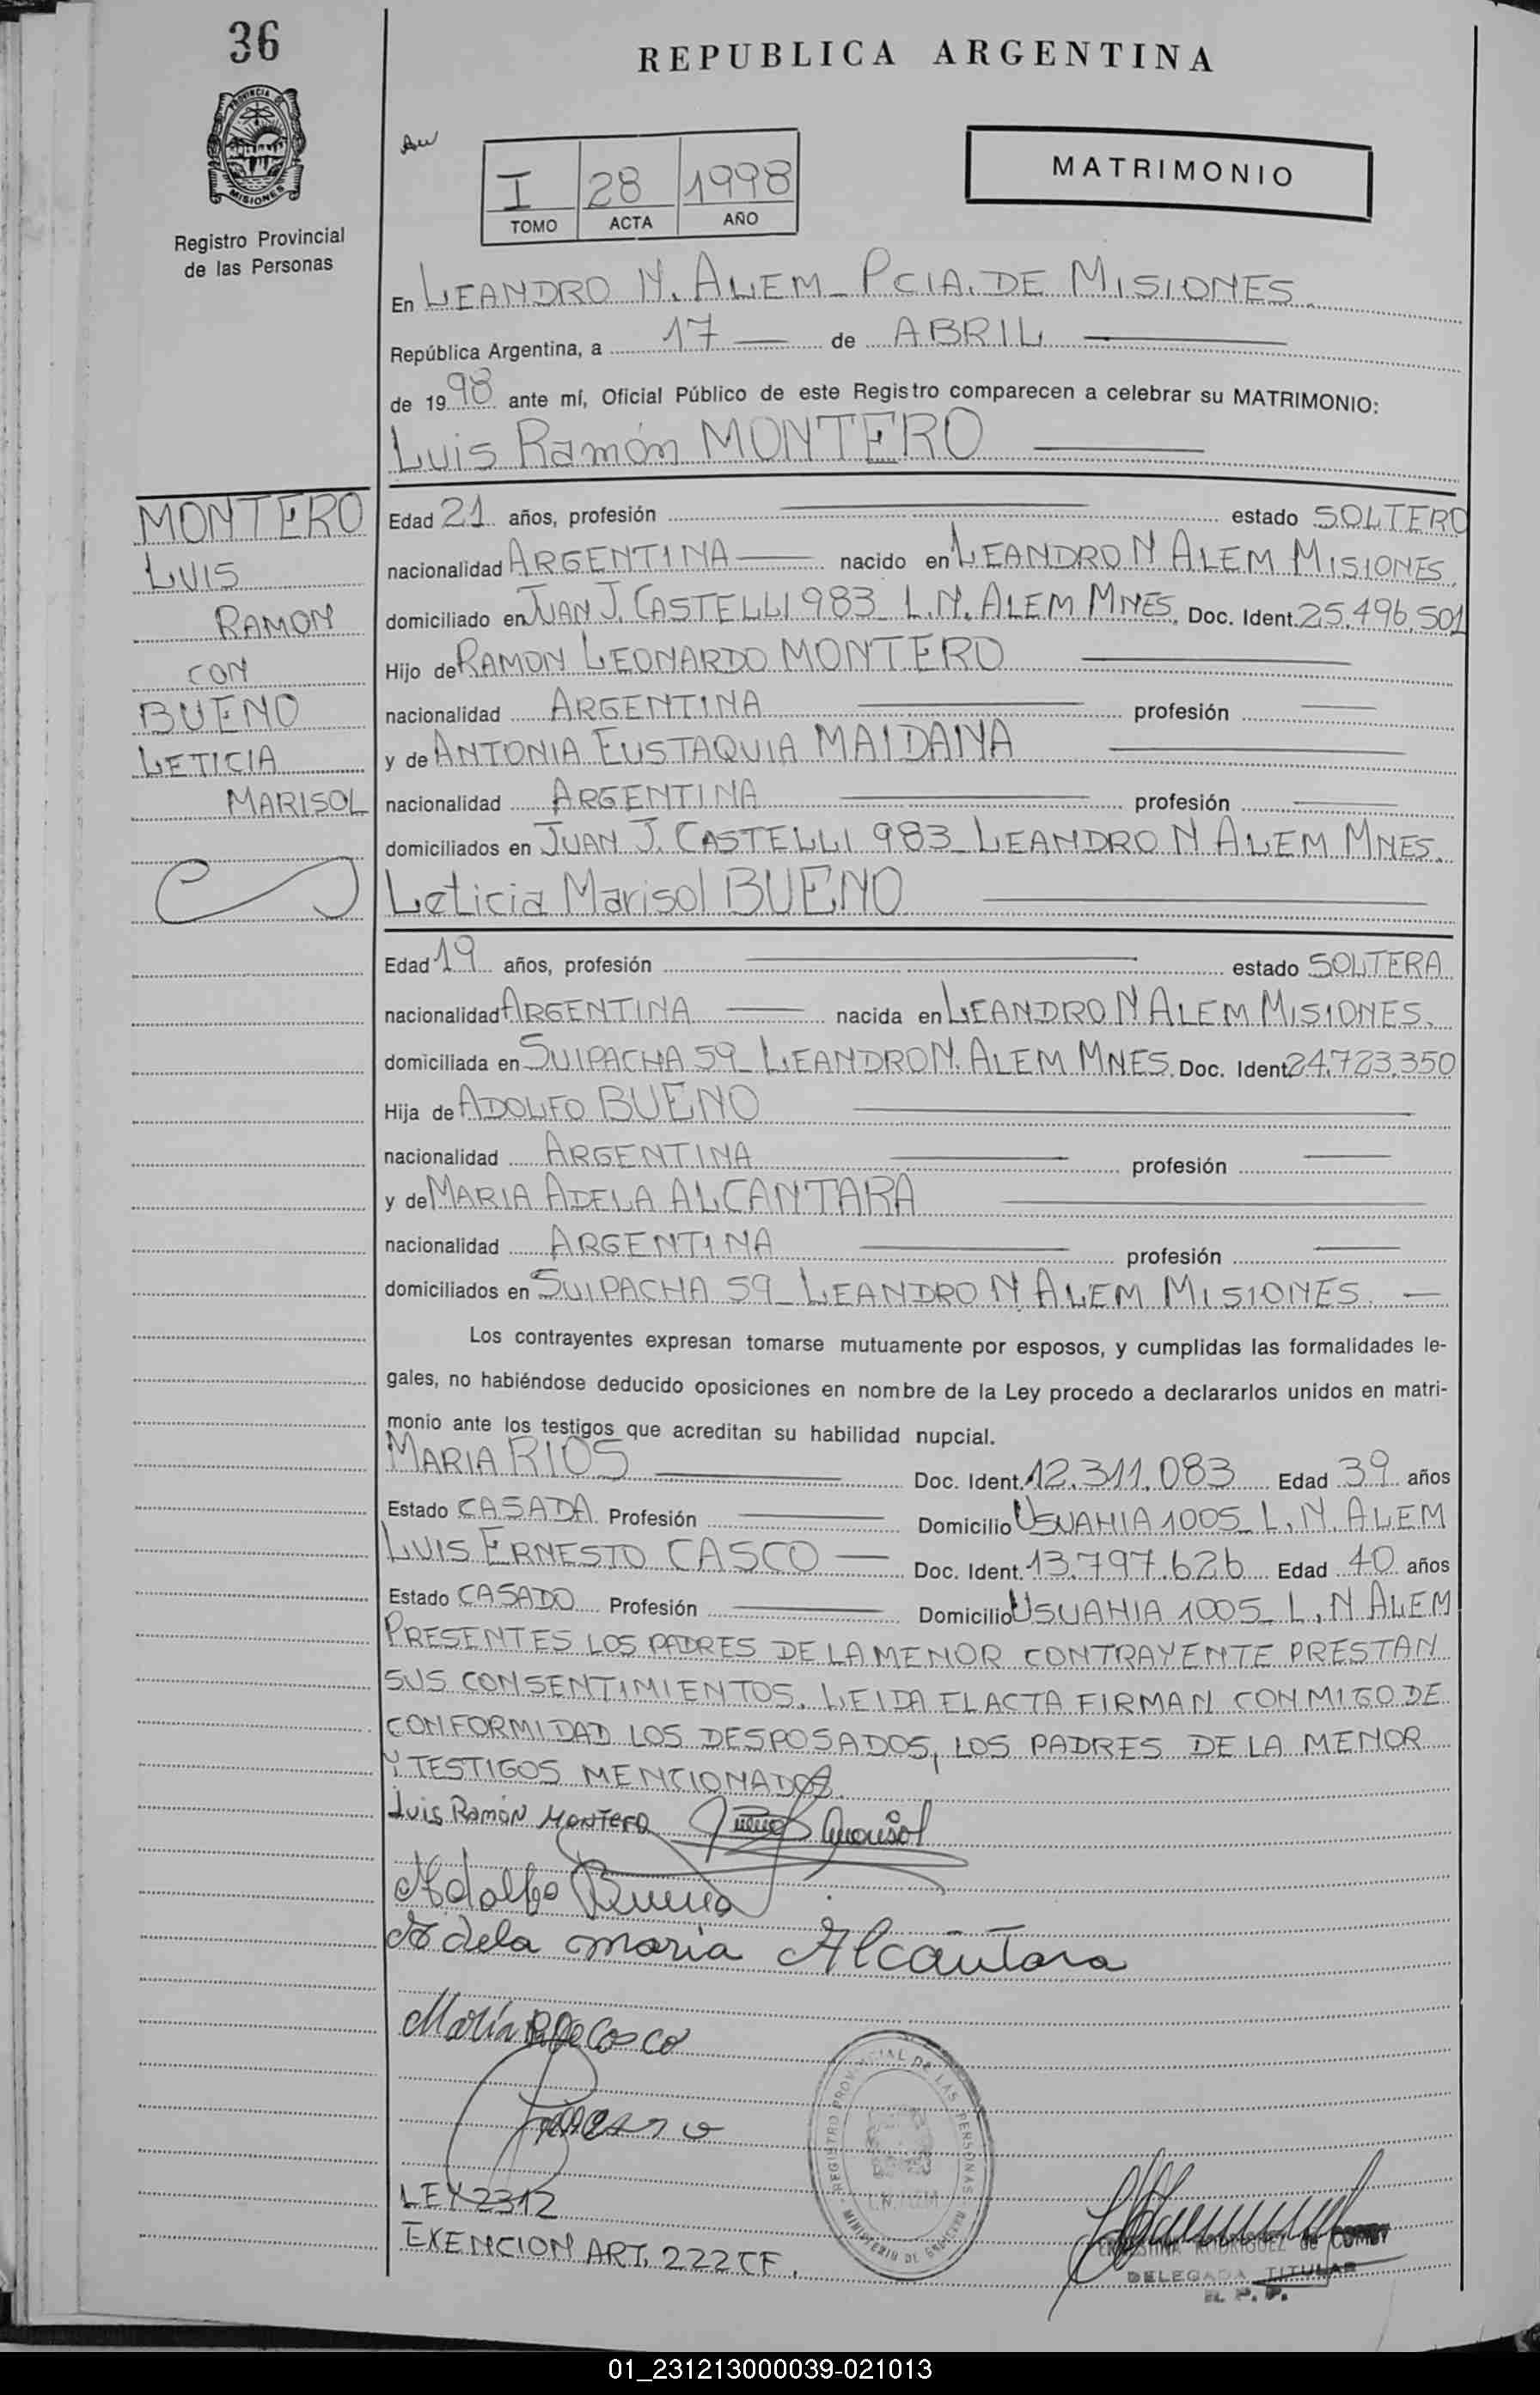 36
REPUBLICA ARGENTINA
PROVINCIA DE
MISIONES
Registro Provincial
de las Personas
I 28 1998
TOMO ACTA AÑO
MATRIMONIO
En LEANDRO N. ALEM - PCIA. DE MISIONES.
República Argentina, a 17 — de ABRIL —
de 1998 ante mí, Oficial Público de este Registro comparecen a celebrar su MATRIMONIO:
Luis Ramón MONTERO —
MONTERO
LUIS
RAMON
CON
BUENO
LETICIA
MARISOL
Edad 21 años, profesión — estado SOLTERO
nacionalidad ARGENTINA — nacido en LEANDRO N ALEM MISIONES.
domiciliado en JUAN J. CASTELLI 983 - L.N. ALEM MNES. Doc. Ident. 25.496.501
Hijo de RAMON LEONARDO MONTERO —
nacionalidad ARGENTINA — profesión —
y de ANTONIA EUSTAQUIA MAIDANA —
nacionalidad ARGENTINA — profesión —
domiciliados en JUAN J. CASTELLI 983 - LEANDRO N ALEM MNES.
Leticia Marisol BUENO —
Edad 19 años, profesión — estado SOLTERA
nacionalidad ARGENTINA — nacida en LEANDRO N ALEM MISIONES.
domiciliada en SUIPACHA 59 - LEANDRO N. ALEM MNES. Doc. Ident. 24.723.350
Hija de ADOLFO BUENO —
nacionalidad ARGENTINA — profesión —
y de MARIA ADELA ALCANTARA —
nacionalidad ARGENTINA — profesión —
domiciliados en SUIPACHA 59 - LEANDRO N ALEM MISIONES. —
Los contrayentes expresan tomarse mutuamente por esposos, y cumplidas las formalidades le-
gales, no habiéndose deducido oposiciones en nombre de la Ley procedo a declararlos unidos en matri-
monio ante los testigos que acreditan su habilidad nupcial.
MARIA RIOS — Doc. Ident. 12.311.083 Edad 39 años
Estado CASADA Profesión — Domicilio USUAHIA 1005 - L.N. ALEM
LUIS ERNESTO CASCO — Doc. Ident. 13.797.626 Edad 40 años
Estado CASADO Profesión — Domicilio USUAHIA 1005 - L.N ALEM
PRESENTES LOS PADRES DE LA MENOR CONTRAYENTE PRESTAN
SUS CONSENTIMIENTOS. LEIDA EL ACTA FIRMAN CONMIGO DE
CONFORMIDAD LOS DESPOSADOS, LOS PADRES DE LA MENOR
Y TESTIGOS MENCIONADOS.
Luis Ramón MONTERO Bueno Marisol
Adolfo Bueno
Adela maria Alcántara
María R. De Casco
REGISTRO PROVINCIAL DE LAS PERSONAS
MINISTERIO DE GOBIERNO
LEY 2312
EXENCION ART. 222 CF.
RODRIGUEZ de
DELEGADA TITULAR
R. P. P.
01_231213000039-021013